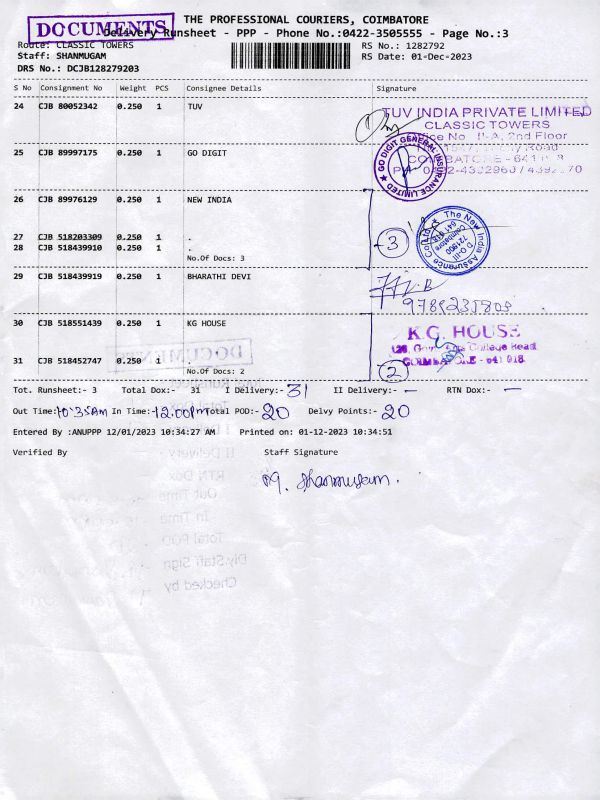 DOCUMENTS
THE PROFESSIONAL COURIERS, COIMBATORE
Delivery Runsheet - PPP - Phone No.:0422-3505555 - Page No.:3
Route: CLASSIC TOWERS RS No.: 1282792
Staff: SHANMUGAM RS Date: 01-Dec-2023
DRS No.: DCJB128279203
S No Consignment No Weight PCS Consignee Details Signature
24 CJB 80052342 0.250 1 TUV
TUV INDIA PRIVATE LIMITED
CLASSIC TOWERS
2nd Floor
25 CJB 89997175 0.250 1 GO DIGIT
GO DIGIT GENERAL INSURANCE LIMITED
26 CJB 89976129 0.250 1 NEW INDIA
The New India Assurance Co. Ltd.
27 CJB 518203309 0.250 1 .
3
28 CJB 518439910 0.250 1 .
No.Of Docs: 3
29 CJB 518439919 0.250 1 BHARATHI DEVI
30 CJB 518551439 0.250 1 KG HOUSE
K.G. HOUSE
College Road
COIMBATORE - 641 018
31 CJB 518452747 0.250 1 .
No.Of Docs: 2
2
Tot. Runsheet:- 3 Total Dox:- 31 I Delivery:- 31 II Delivery:- — RTN Dox:- —
Out Time: 10:35AM In Time:- 12:00pm Total POD:- 20 Delvy Points:- 20
Entered By :ANUPPP 12/01/2023 10:34:27 AM Printed on: 01-12-2023 10:34:51
Verified By Staff Signature
Shanmugam.